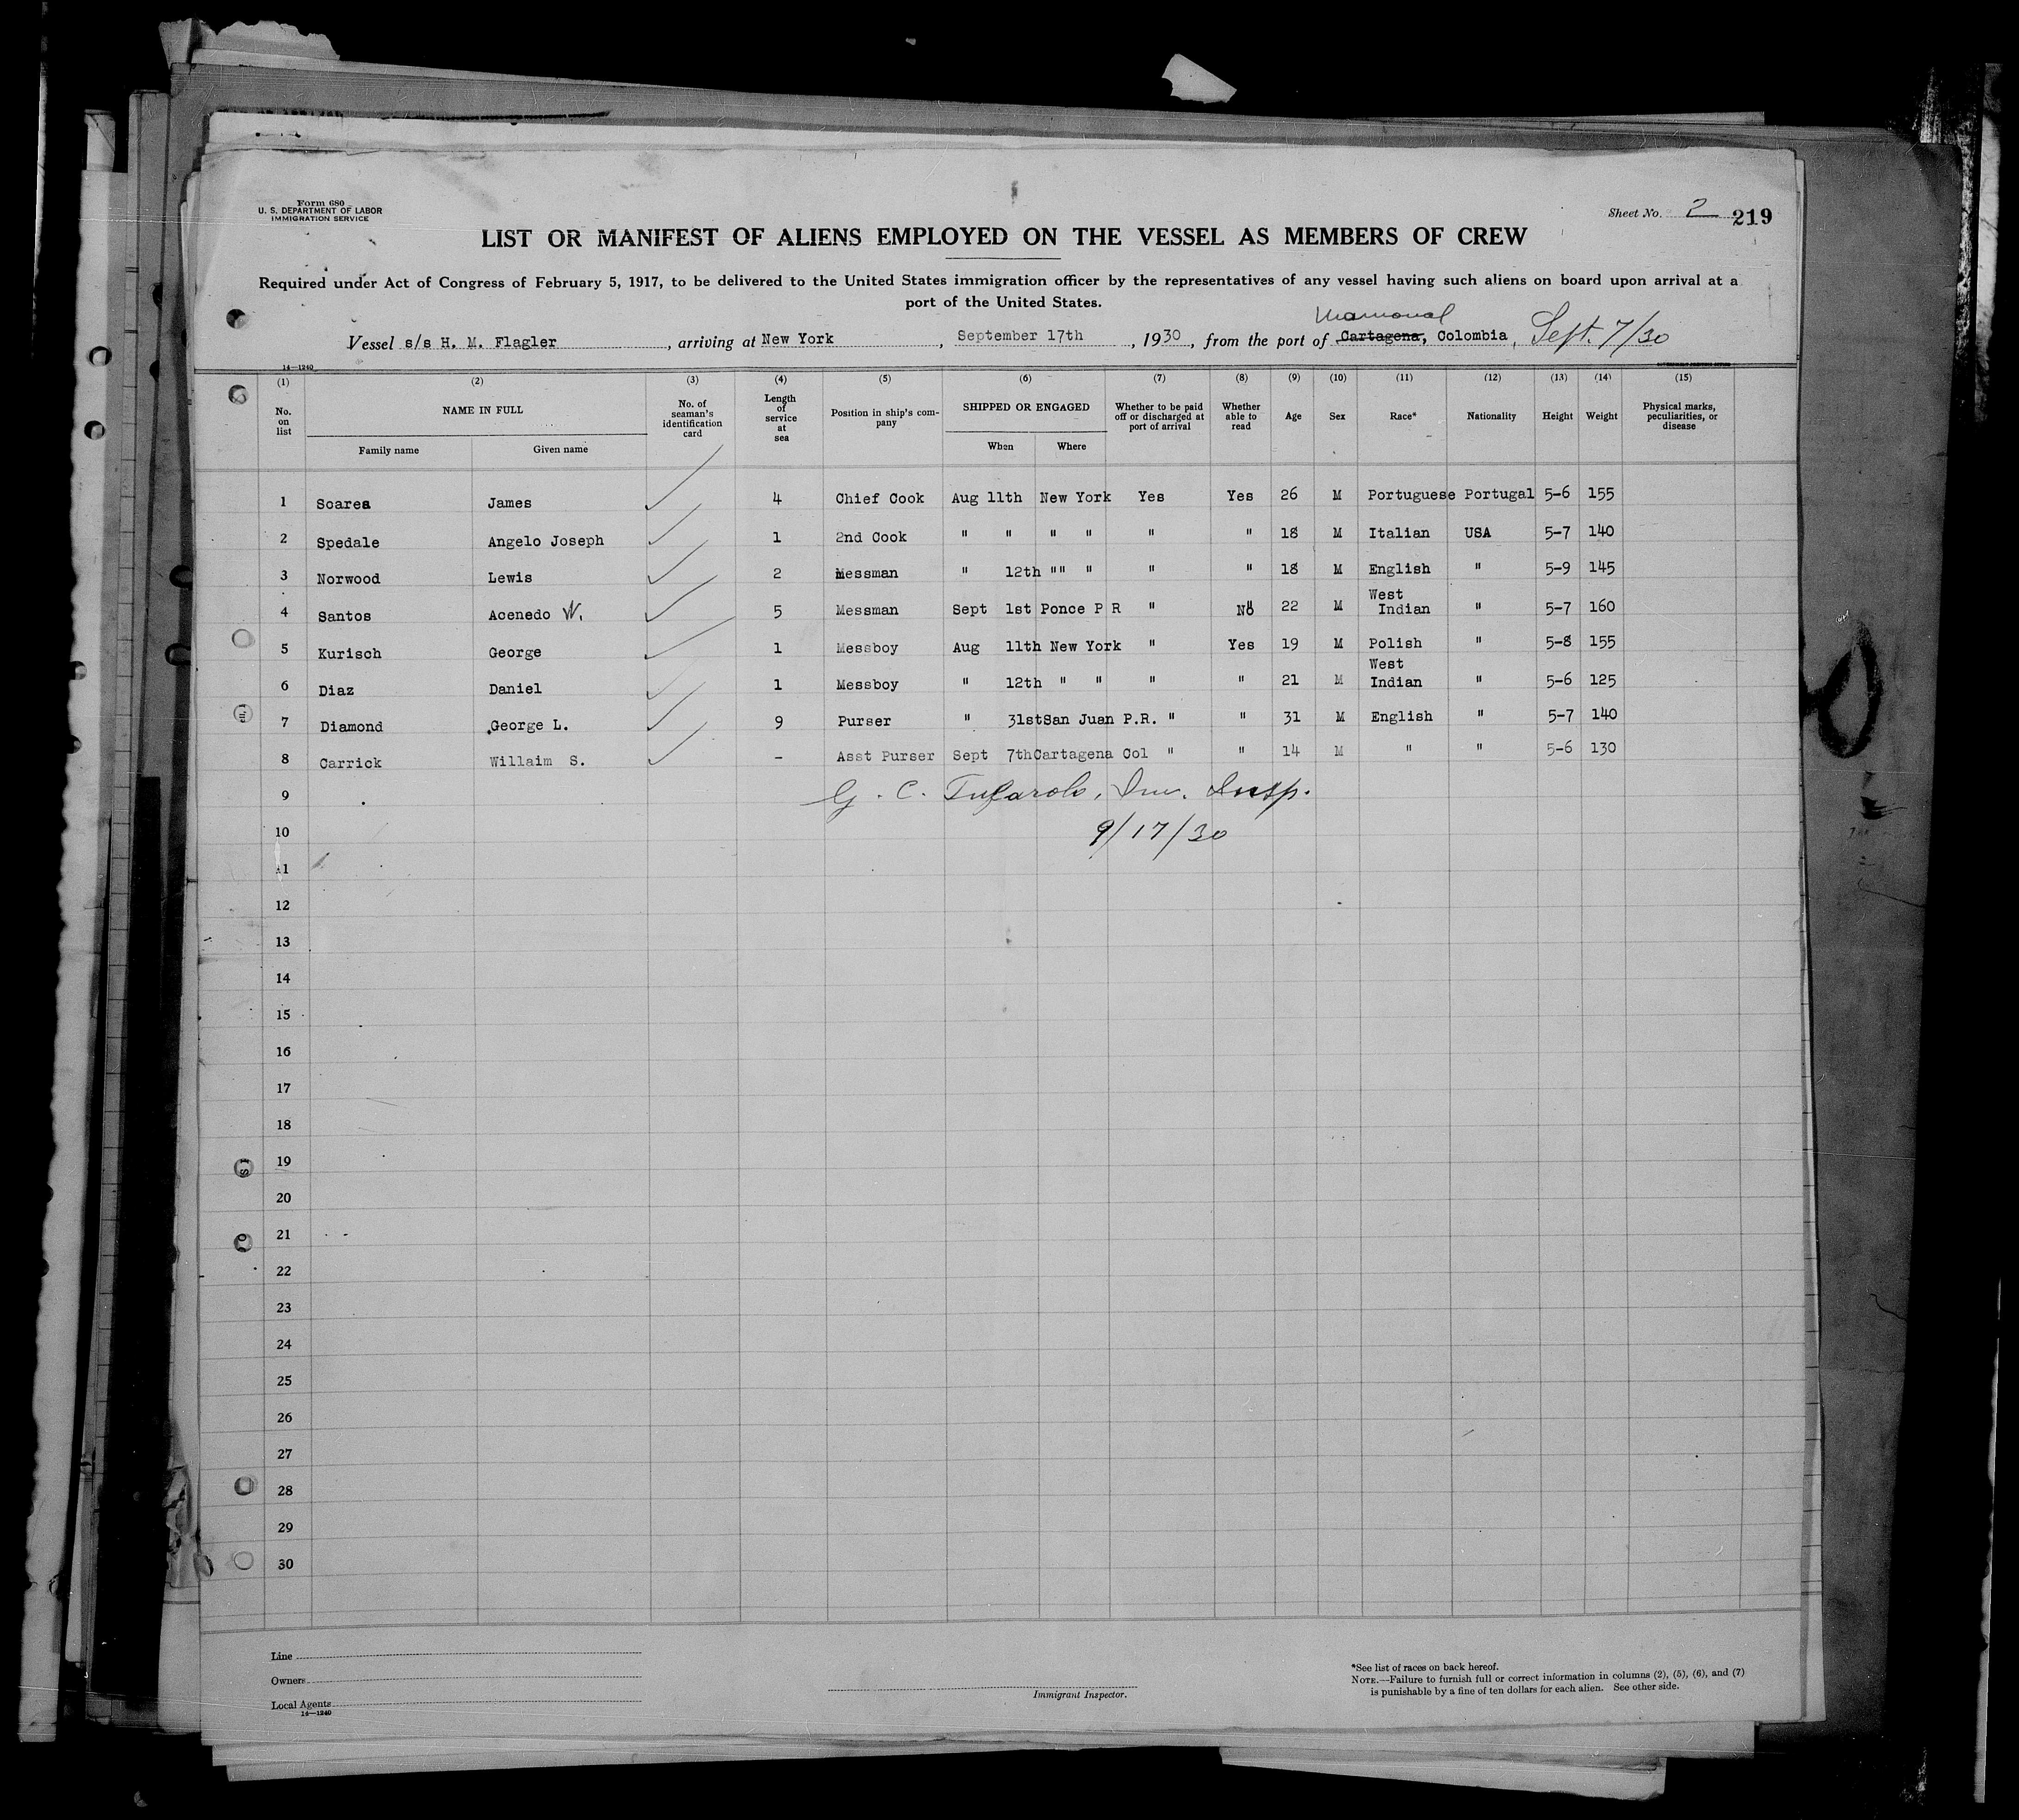 Form 680
U. S. DEPARTMENT OF LABOR
IMMIGRATION SERVICE
Sheet No. 2 219
LIST OR MANIFEST OF ALIENS EMPLOYED ON THE VESSEL AS MEMBERS OF CREW
Required under Act of Congress of February 5, 1917, to be delivered to the United States immigration officer by the representatives of any vessel having such aliens on board upon arrival at a
port of the United States.
Mamonal
Vessel s/s H. M. Flagler, arriving at New York, September 17th, 1930, from the port of Cartagena, Colombia, Sept. 7/30
14—1240
(1) (2) (3) (4) (5) (6) (7) (8) (9) (10) (11) (12) (13) (14) (15)
No. on list NAME IN FULL No. of seaman's identification card Length of service at sea Position in ship's company SHIPPED OR ENGAGED Whether to be paid off or discharged at port of arrival Whether able to read Age Sex Race* Nationality Height Weight Physical marks, peculiarities, or disease
Family name Given name When Where
1 Soares James 4 Chief Cook Aug 11th New York Yes Yes 26 M Portuguese Portugal 5-6 155
2 Spedale Angelo Joseph 1 2nd Cook " " " " " " 18 M Italian USA 5-7 140
3 Norwood Lewis 2 Messman " 12th "" " " " 18 M English " 5-9 145
4 Santos Acenedo W. 5 Messman Sept 1st Ponce P R " No 22 M West Indian " 5-7 160
5 Kurisch George 1 Messboy Aug 11th New York " Yes 19 M Polish " 5-8 155
6 Diaz Daniel 1 Messboy " 12th " " " " 21 M West Indian " 5-6 125
7 Diamond George L. 9 Purser " 31st San Juan P.R. " " 31 M English " 5-7 140
8 Carrick Willaim S. - Asst Purser Sept 7th Cartagena Col " " 14 M " " 5-6 130
9 G. C. Imm. Insp.
10 9/17/30
11
12
13
14
15
16
17
18
19
20
21
22
23
24
25
26
27
28
29
30
Line
Owners
Local Agents
14—1240
Immigrant Inspector.
*See list of races on back hereof.
NOTE.—Failure to furnish full or correct information in columns (2), (5), (6), and (7)
is punishable by a fine of ten dollars for each alien. See other side.